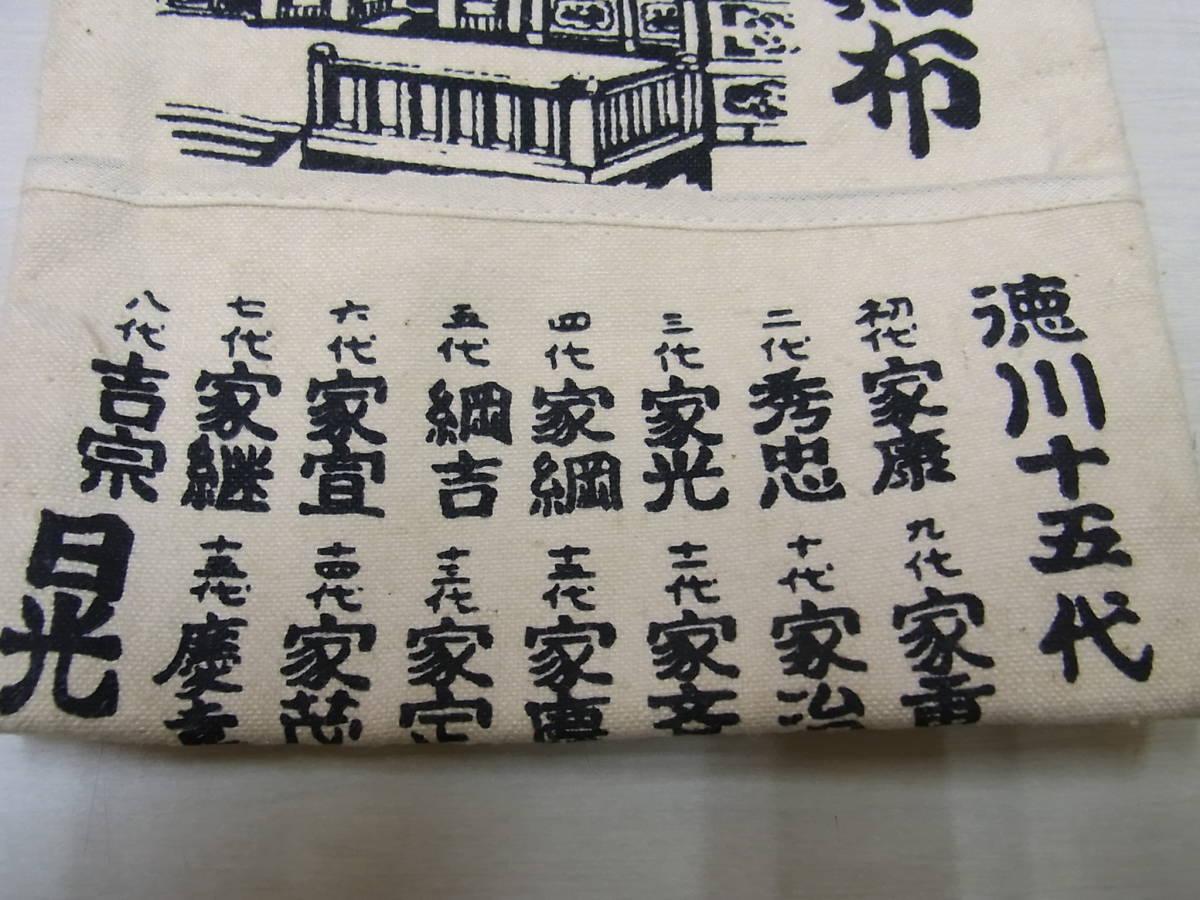 布
徳川十五代
初代家康
二代秀忠
三代家光
四代家綱
五代綱吉
六代家宣
七代家継
八代吉宗
九代家重
十代家治
十一代家斉
十二代家慶
十三代家定
十四代家茂
十五代慶喜
日光